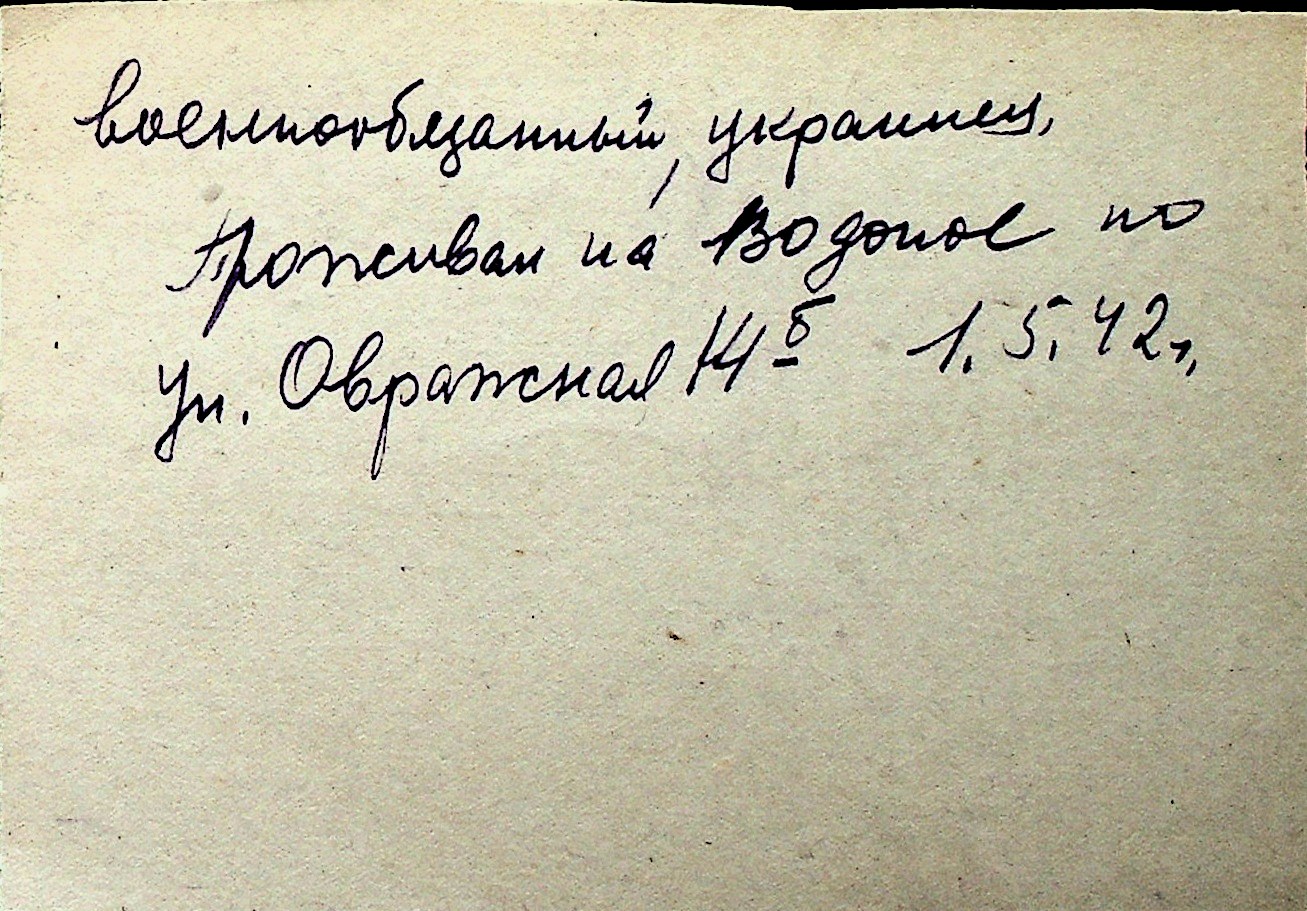 военнообязанный, украинец.
Проживал на Водопое по
ул. Овражная 14б 1.5.42г.